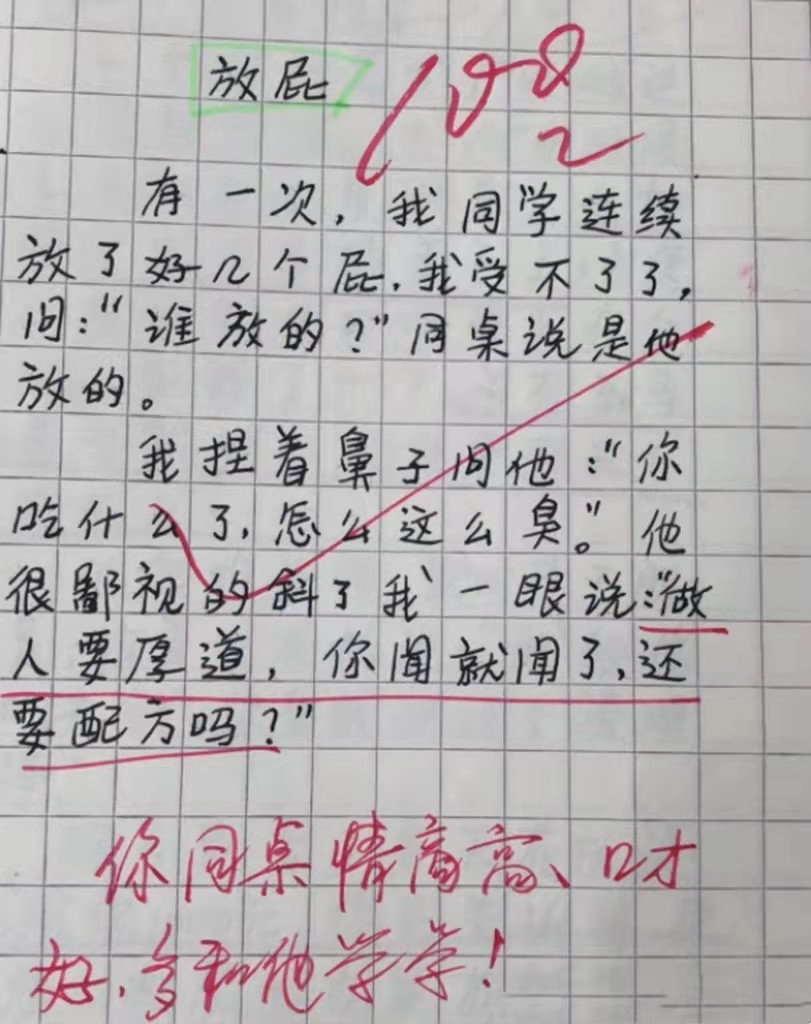 放屁
100
有一次，我同学连续
放了好几个屁，我受不了了，
问：“谁放的？”同桌说是他
放的。
我捏着鼻子问他：“你
吃什么了，怎么这么臭。”他
很鄙视的斜了我一眼说：“做
人要厚道，你闻就闻了，还
要配方吗？”
你同桌情商高、口才
好，多和他学学！